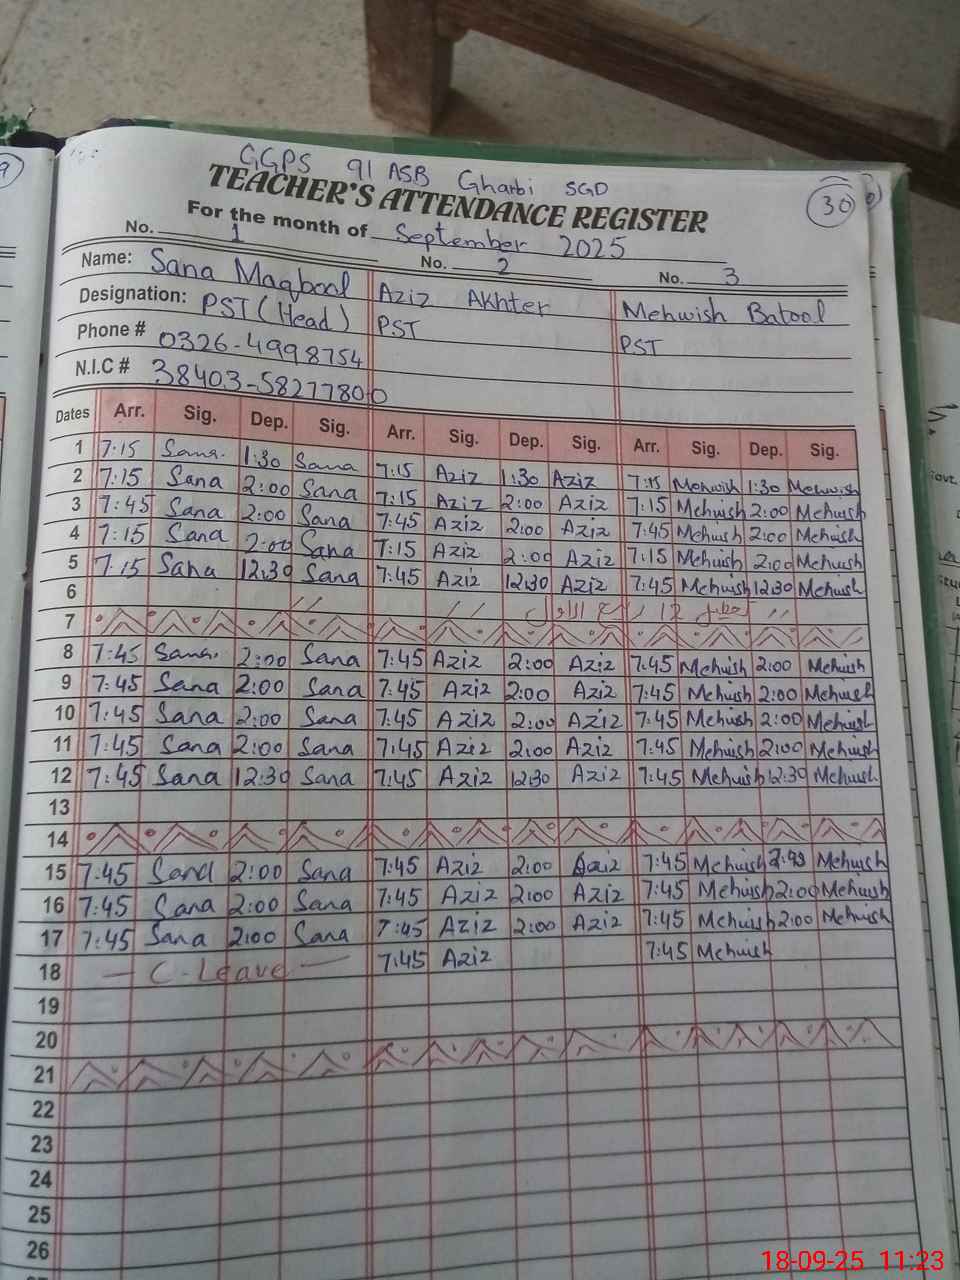 GGPS 91 ASB Gharbi SGD
TEACHER'S ATTENDANCE REGISTER
30
For the month of September 2025
No. 1 No. 2 No. 3
Name: Sana Maqbool Aziz Akhter Mehwish Batool
Designation: PST (Head) PST PST
Phone # 0326-4998754
N.I.C # 38403-5827780-0
Dates Arr. Sig. Dep. Sig. Arr. Sig. Dep. Sig. Arr. Sig. Dep. Sig.
1 7:15 Sana 1:30 Sana 7:15 Aziz 1:30 Aziz 7:15 Mehwish 1:30 Mehwish
2 7:15 Sana 2:00 Sana 7:15 Aziz 2:00 Aziz 7:15 Mehwish 2:00 Mehwish
3 7:45 Sana 2:00 Sana 7:45 Aziz 2:00 Aziz 7:45 Mehwish 2:00 Mehwish
4 7:15 Sana 2:00 Sana 7:15 Aziz 2:00 Aziz 7:15 Mehwish 2:00 Mehwish
5 7:15 Sana 12:30 Sana 7:45 Aziz 12:30 Aziz 7:45 Mehwish 12:30 Mehwish
6 12 ربیع الاول
7
8 7:45 Sana 2:00 Sana 7:45 Aziz 2:00 Aziz 7:45 Mehwish 2:00 Mehwish
9 7:45 Sana 2:00 Sana 7:45 Aziz 2:00 Aziz 7:45 Mehwish 2:00 Mehwish
10 7:45 Sana 2:00 Sana 7:45 Aziz 2:00 Aziz 7:45 Mehwish 2:00 Mehwish
11 7:45 Sana 2:00 Sana 7:45 Aziz 2:00 Aziz 7:45 Mehwish 2:00 Mehwish
12 7:45 Sana 12:30 Sana 7:45 Aziz 12:30 Aziz 7:45 Mehwish 12:30 Mehwish
13
14
15 7:45 Sana 2:00 Sana 7:45 Aziz 2:00 Aziz 7:45 Mehwish Mehwish
16 7:45 Sana 2:00 Sana 7:45 Aziz 2:00 Aziz 7:45 Mehwish 2:00 Mehwish
17 7:45 Sana 2:00 Sana 7:45 Aziz 2:00 Aziz 7:45 Mehwish 2:00 Mehwish
18 — C-Leave — 7:45 Aziz 7:45 Mehwish
19
20
21
22
23
24
25
26
18-09-25 11:23